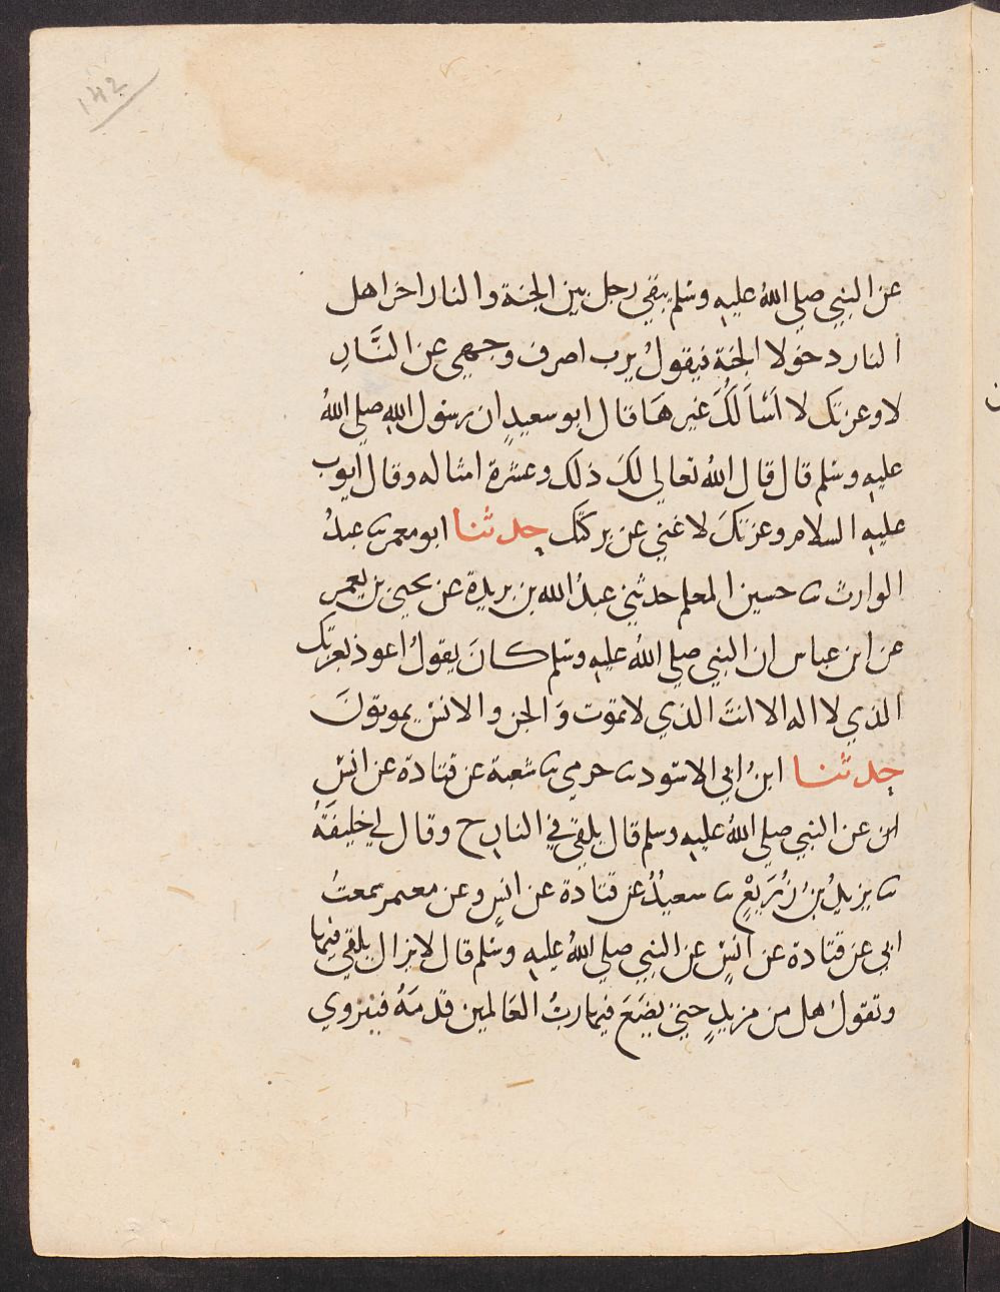 142
عن النبي صلي اللهُ عليهِ وسلم يبقي رجل بين الجنة والنار اخر اهل
النار دخولا الجنة فيقولُ يرب اصرف وجهي عن النَّارِ
لا وعزتك لا اَسْاَلُكَ غيرهَا قال ابو سعيدٍ ان رسول اللهِ صلي اللهُ
عليهِ وسلم قال قال اللهُ تعالي لكَ ذلك وعشرة امثاله وقال ايوب
عليهِ السلام وعزتكَ لا غني عن بركتك حدثنا ابو معمر ثنا عبدُ
الوارث ثنا حسين المعلم حدثني عبدُ الله بن بريدة عن يحيي بن يعمر
عن ابن عباس ان النبي صلي اللهُ عليهِ وسلم كانَ يقولُ اعوذ بعزتك
الذي لا اله الا انتَ الذي لا تموت وَ الجن والانس يموتونَ
حدثنا ابنُ ابي الاسود ثنا حرمي ثنا شعبة عن قتادة عن انس
عن النبي صلي اللهُ عليهِ وسلم قال يلقي في النارِ ح وقال لي خليفَةُ
ثنا يزيدُ بنُ زُرَيْعٍ ثنا سعيدُ عن قتادة عن انسٍ وعن معمر سمعتُ
ابي عن قتادة عن انسٍ عن النبي صلي اللهُ عليهِ وسلم قال لا يزال يلقي فيها
وتقولُ هل من مزيدٍ حتي يضَعَ فيها ربُ العَالمين قدمَهُ فينزوي